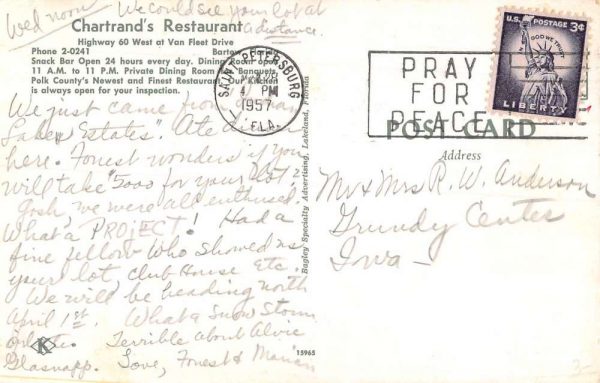 Wed noon We could see your lot at
a distance.
Chartrand's Restaurant
Highway 60 West at Van Fleet Drive
Phone 2-0241 Bartow, Florida
Snack Bar Open 24 hours every day. Dining Room open
11 A.M. to 11 P.M. Private Dining Room for Banquets.
Polk County's Newest and Finest Restaurant. Our Kitchen
is always open for your inspection.
We just came from
Lakes Estates". Ate dinner
here. Forest wonders if you
will take $5000 for your lot?
Gosh, we were all enthused.
What a PROJECT! Had a
fine fellow who showed us
your lot, club House etc.
We will be heading north
April 1st. What a snow storm
Terrible about Alvie
Glasnapp. Love, Forest & Marian
K
15965
Bagley Specialty Advertising, Lakeland, Florida
SAINT PETERSBURG
4 PM
1957
FLA.
PRAY
FOR
PEACE
U.S. POSTAGE 3¢
IN GOD WE TRUST
LIBERTY
POST CARD
Address
Mr & Mrs R. W. Anderson
Grundy Center
Iowa -
3-